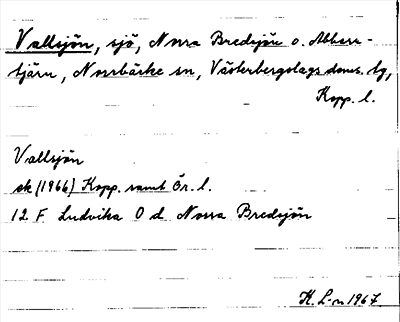 Vallsjön, sjö, Norra Bredsjön o. Abborr-
tjärn, Norrbärke sn, Västerbergslags doms. tg,
Kopp. l.
Vallsjön
ek (1966) Kopp. samt Ör. l.
12 F Ludvika 0 d Norra Bredsjön
K. L-n 1967.